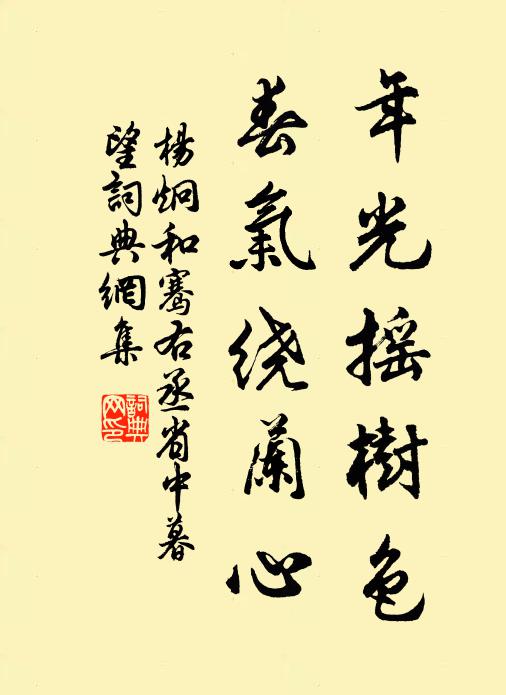 年光摇樹色
春氣绕蘭心
楊炯和騫右丞省中暮
望詞典網集
詞典
网印